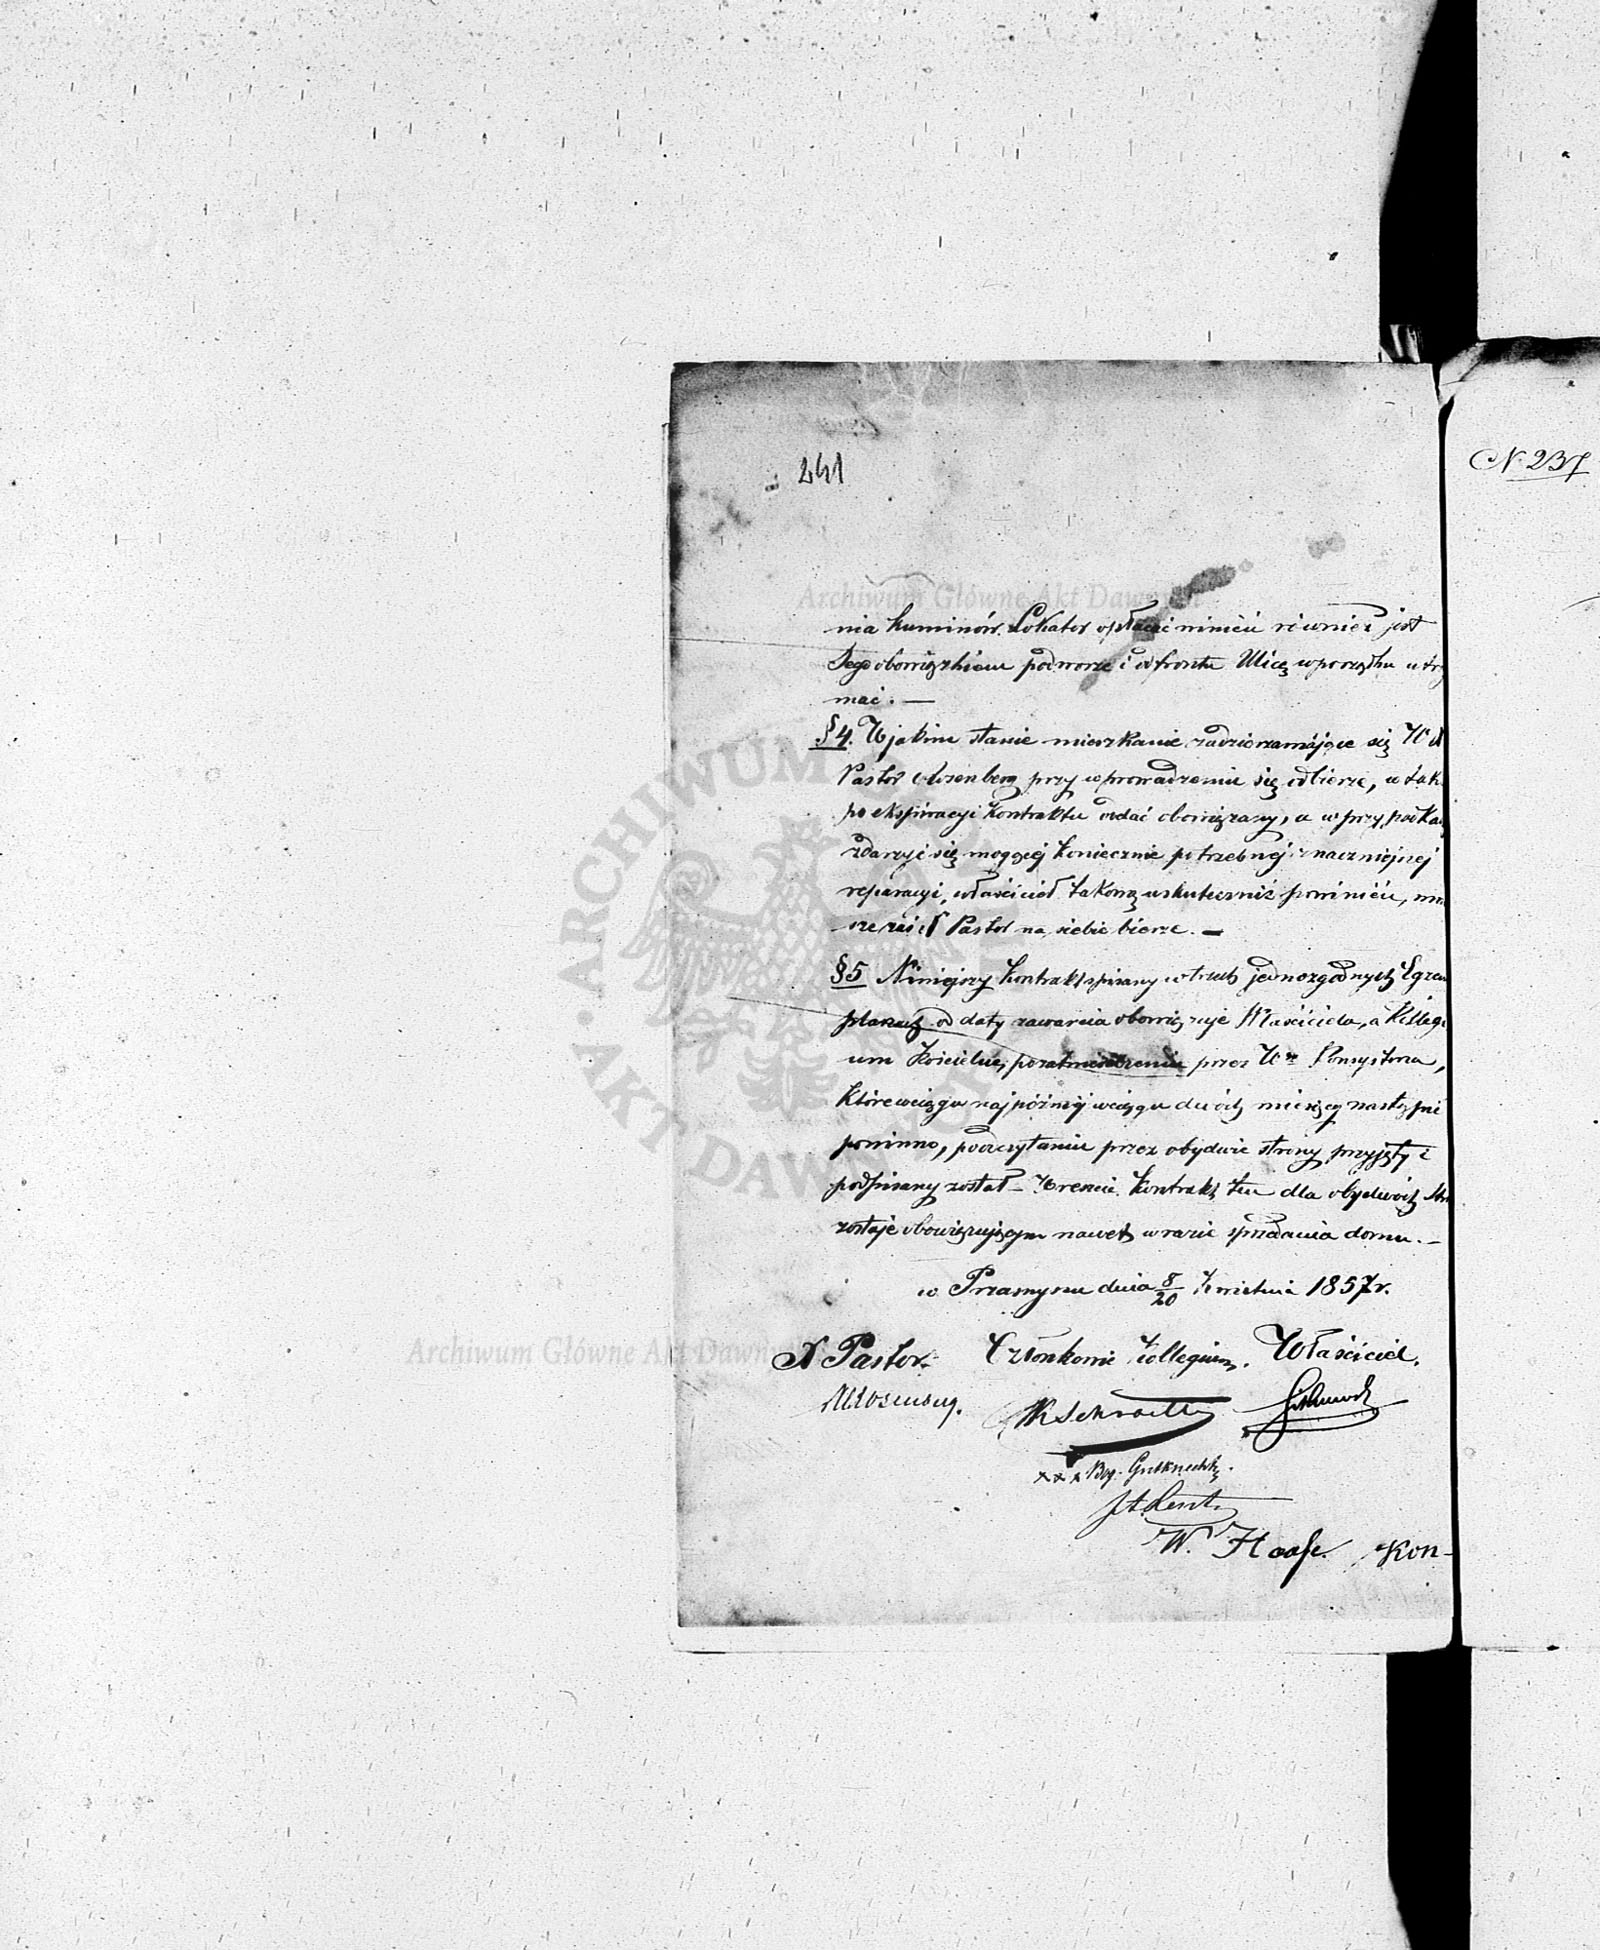 241
N. 237
nia kuminów. Lokator opłacać winien również jest
Jego obowiązkiem podworze i od frontu Ulicę w porządku utrzy
mać. —
§ 4. W jakim stanie mieszkanie zadzierzawiające się W
Pastor przy wprowadzeniu się odbierze, w tak
po ekspiracyi Kontraktu oddać obowiązany, a w przypadka
zdarzyć się mogącej koniecznie potrzebnej znaczniejszej
reparacyi, właściciel takową uskutecznić powinien,
Pastor na siebie bierze. —
§ 5 Niniejszy Kontrakt spisany w trzech jednozgodnych Egzem
plarzach od daty zawarcia obowiązuje Właściciela, a Kollegi
um Kościelne, po zatwierdzeniu przez Konsystorz,
które w ciągu najpóźniej w ciągu dwóch miesięcy nastąpić
powinno, po odczytaniu przez obydwie strony przyjęty i
podpisany został – Wreście Kontrakt ten dla obydwóch
zostaje obowiązującym nawet w razie sprzedania domu. —
w Przasnyszu dnia 8/20 Kwietnia 1857 r.
X Pastor. Członkowie Kollegium. Właściciel.
xxx Bog. Gutknecht.
W. Haase. Kon-
Archiwum Główne Akt Dawnych
Archiwum Główne Akt Dawnych
ARCHIWUM
AKT DAWNYCH